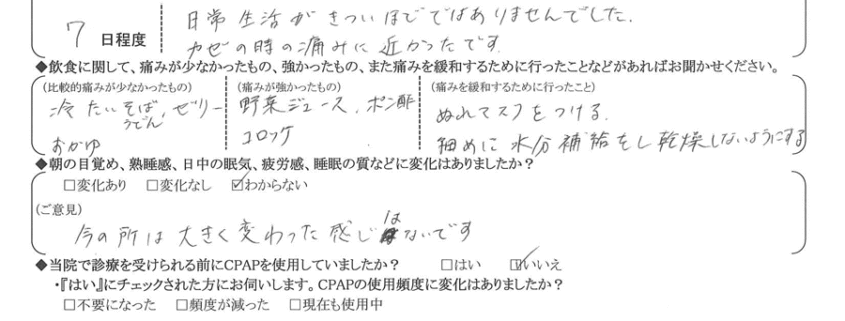 日常生活がきついほどではありませんでした.
7 日程度
カゼの時の痛みに近かったです.
◆飲食に関して、痛みが少なかったもの、強かったもの、また痛みを緩和するために行ったことなどがあればお聞かせください。
(比較的痛みが少なかったもの) (痛みが強かったもの) (痛みを緩和するために行ったこと)
冷たいそば、ゼリー 野菜ジュース、ポン酢 ぬれマスクをつける.
うどん
おかゆ コロッケ 細めに水分補給をし乾燥しないようにする
◆朝の目覚め、熟睡感、日中の眠気、疲労感、睡眠の質などに変化はありましたか?
□変化あり □変化なし ☑わからない
(ご意見)
今の所は大きく変わった感じはないです
◆当院で診療を受けられる前にCPAPを使用していましたか? □はい ☑いいえ
・『はい』にチェックされた方にお伺いします。CPAPの使用頻度に変化はありましたか?
□不要になった □頻度が減った □現在も使用中